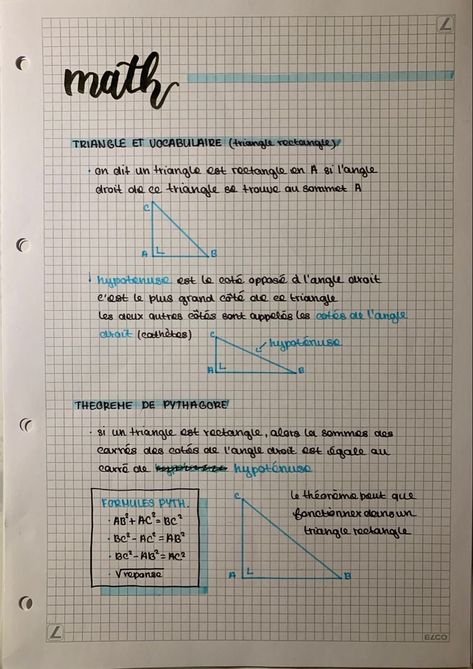 math
TRIANGLE ET VOCABULAIRE (triangle rectangle)
• on dit un triangle est rectangle en A si l'angle
droit de ce triangle se trouve au sommet A
C
A
B
• hypoténuse est le coté opposé à l'angle droit
c'est le plus grand côté de ce triangle
les deux autres côtés sont appelés les cotés de l'angle
droit (cathètes)
C
hypoténuse
A
B
THEOREME DE PYTHAGORE
• si un triangle est rectangle, alors la sommes des
carrés des cotés de l'angle droit est égale au
carré de hypoténuse
FORMULES PYTH.
• AB² + AC² = BC²
• BC² - AC² = AB²
• BC² - AB² = AC²
• √reponse
C
A
B
le théorème peut que
fonctionner dans un
triangle rectangle
ELCO